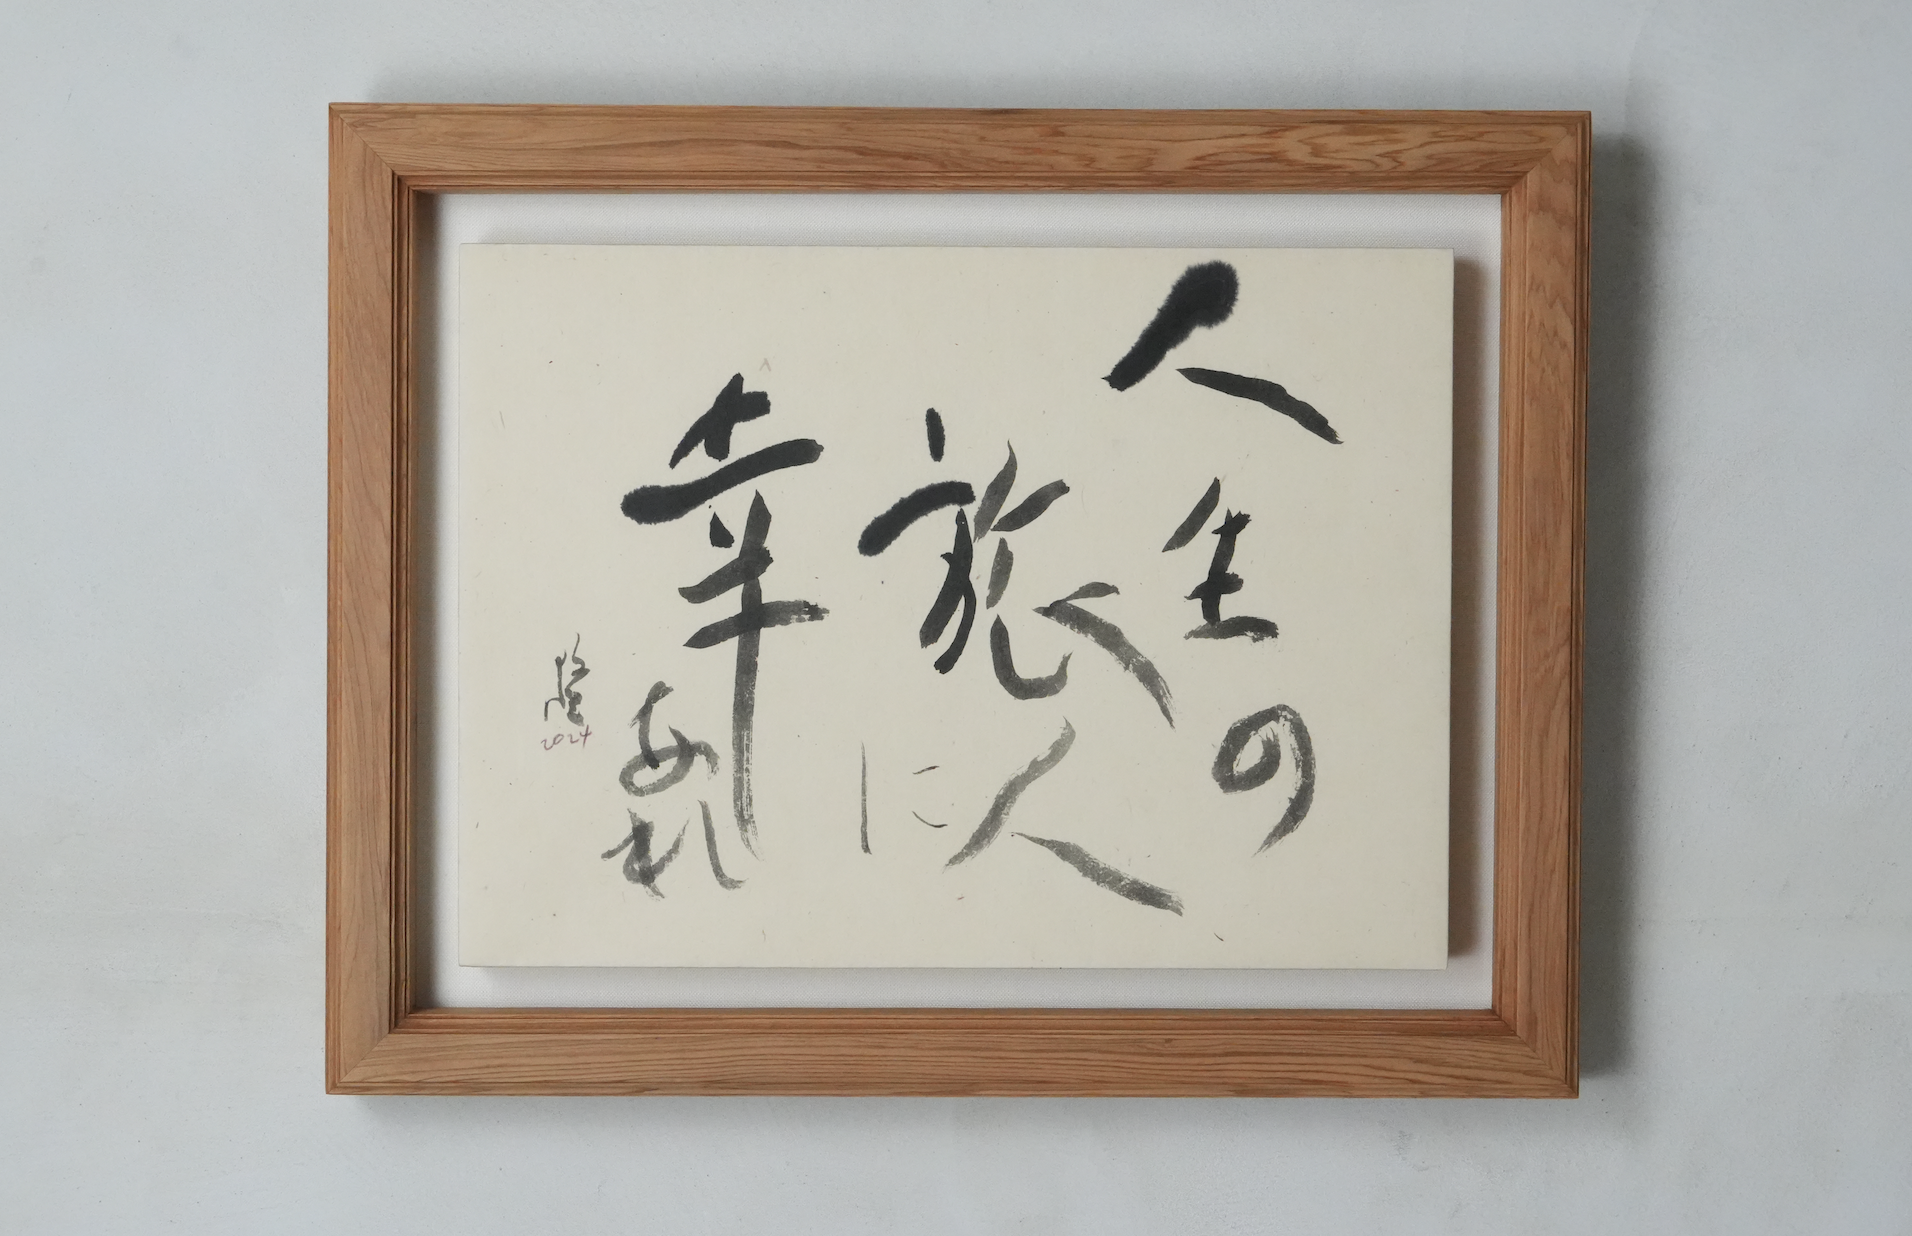 人生の
旅人に
幸あれ
隆
2024